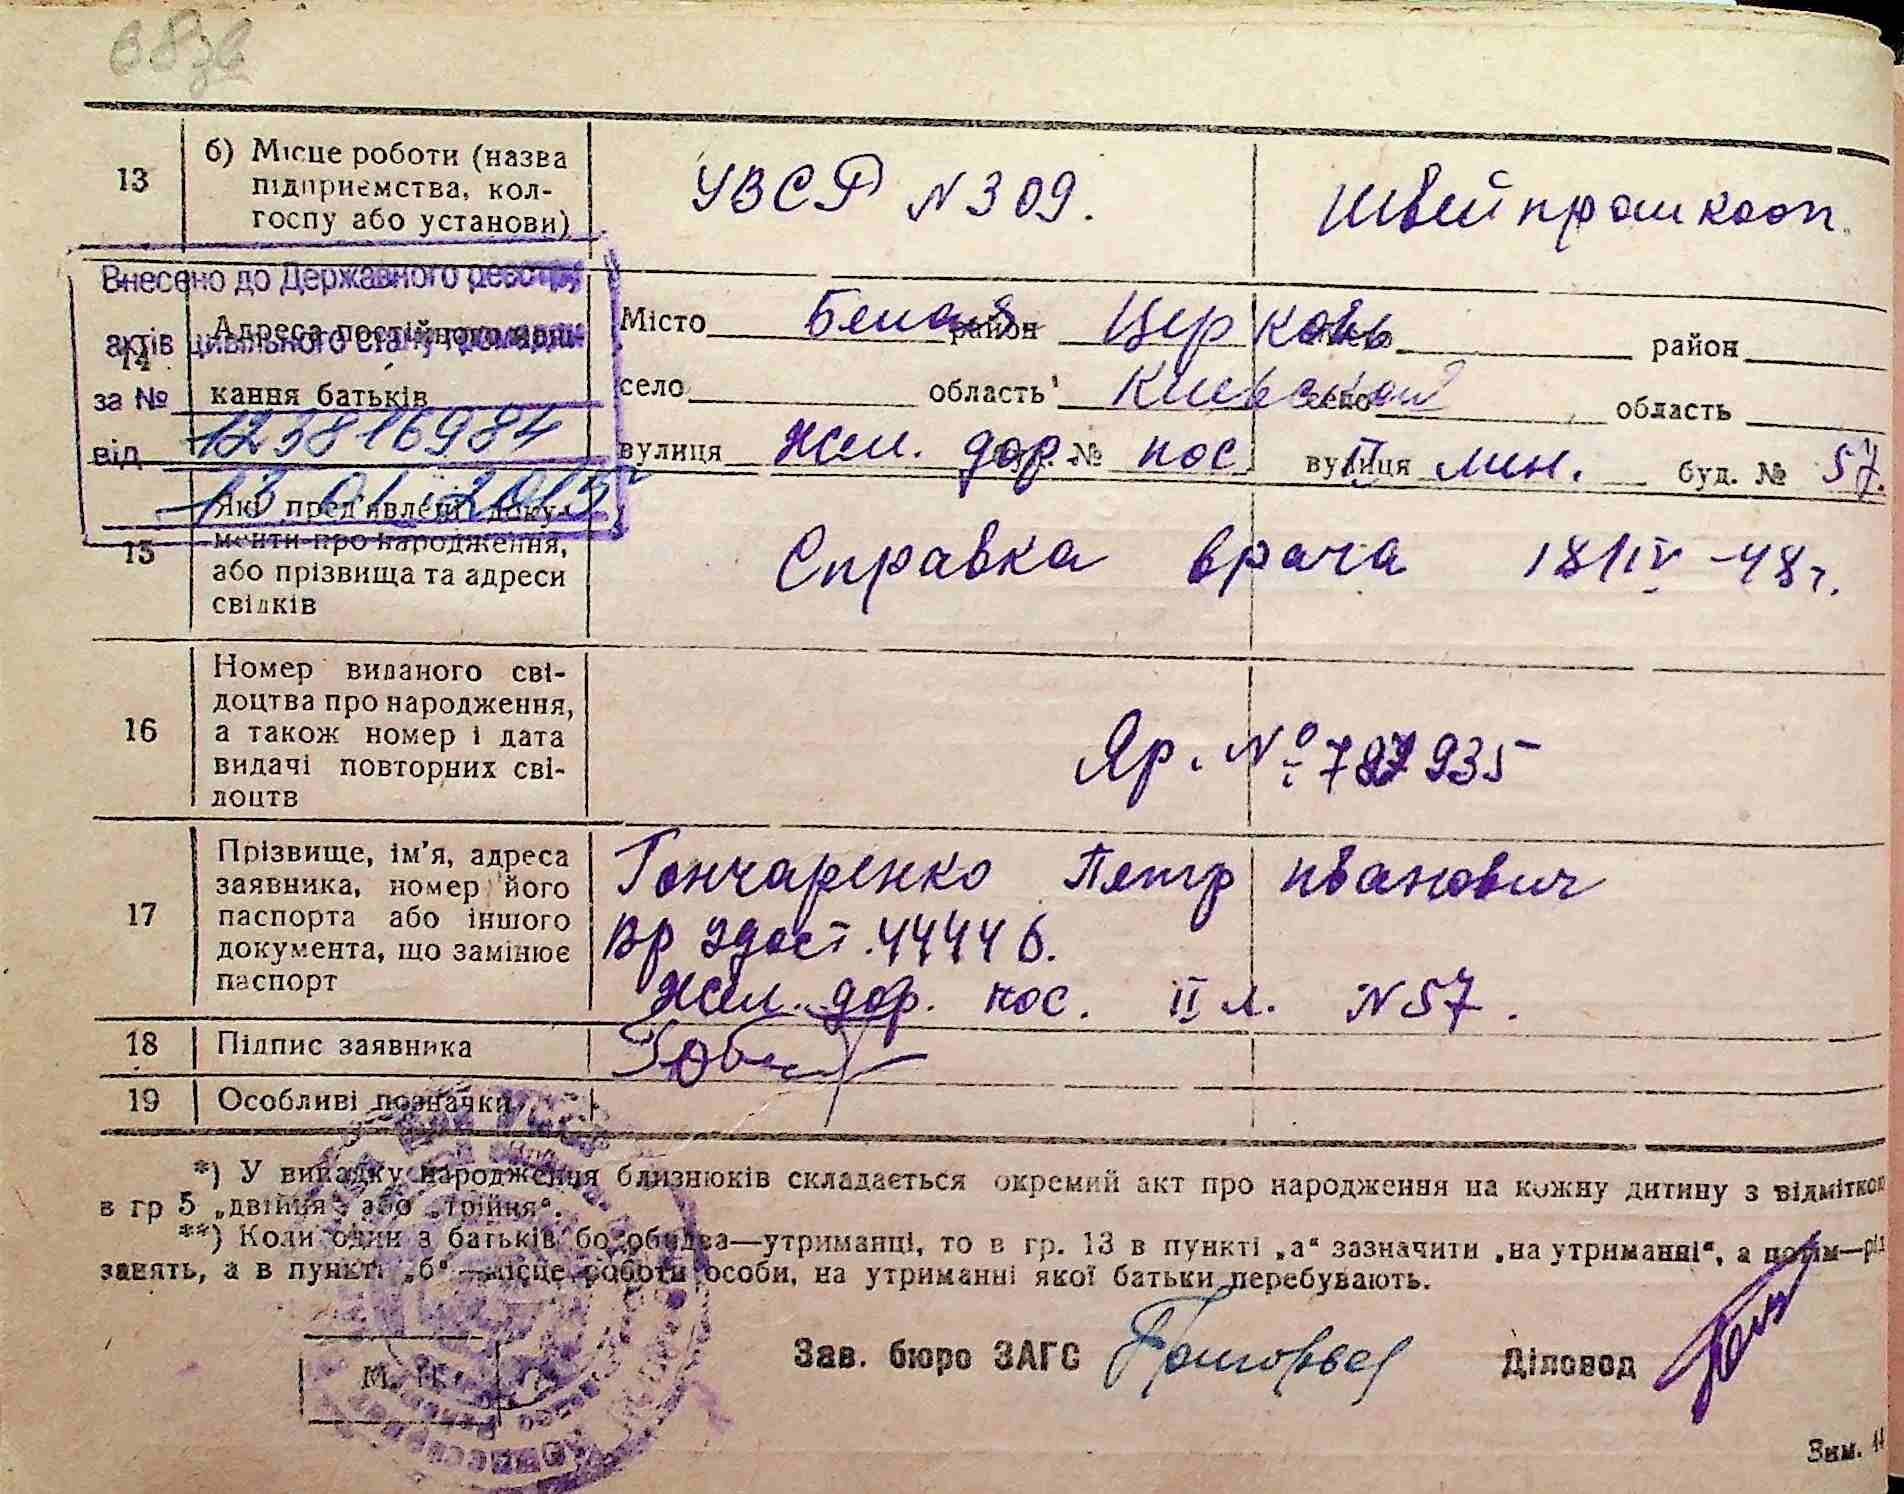 13
б) Місце роботи (назва
підприємства, кол-
госпу або установи)
УВСР N 309.
Швейпромкооп.
Внесено до Державного реєстру
актів цивільного стану громадян
за № 123816984
від 13.01.2015
14
Адреса постійного меш-
кання батьків
Місто Белая район Церковь місто район
село область Киевской село область
вулиця Жел. дор. буд. № пос вулиця II лин. буд. № 57.
15
Які пред'явлені доку-
менти про народження,
або прізвища та адреси
свідків
Справка врача 18/IV-48г.
16
Номер виданого сві-
доцтва про народження,
а також номер і дата
видачі повторних сві-
доцтв
Яр. № 787935
17
Прізвище, ім'я, адреса
заявника, номер його
паспорта або іншого
документа, що замінює
паспорт
Гончаренко Петр Иванович
Вр удост. 44446.
Жел. дор. пос. II л. N 57.
18
Підпис заявника
19
Особливі позначки
*) У випадку народження близнюків складається окремий акт про народження на кожну дитину з відміткою
в гр 5 „двійня“ або „трійня“.
**) Коли один з батьків бо обидва—утриманці, то в гр. 13 в пункті „а“ зазначити „на утриманні“, а потім—рід
занять, а в пункті „б“—місце роботи особи, на утриманні якої батьки перебувають.
М. П.
Зав. бюро ЗАГС
Діловод
Зам.